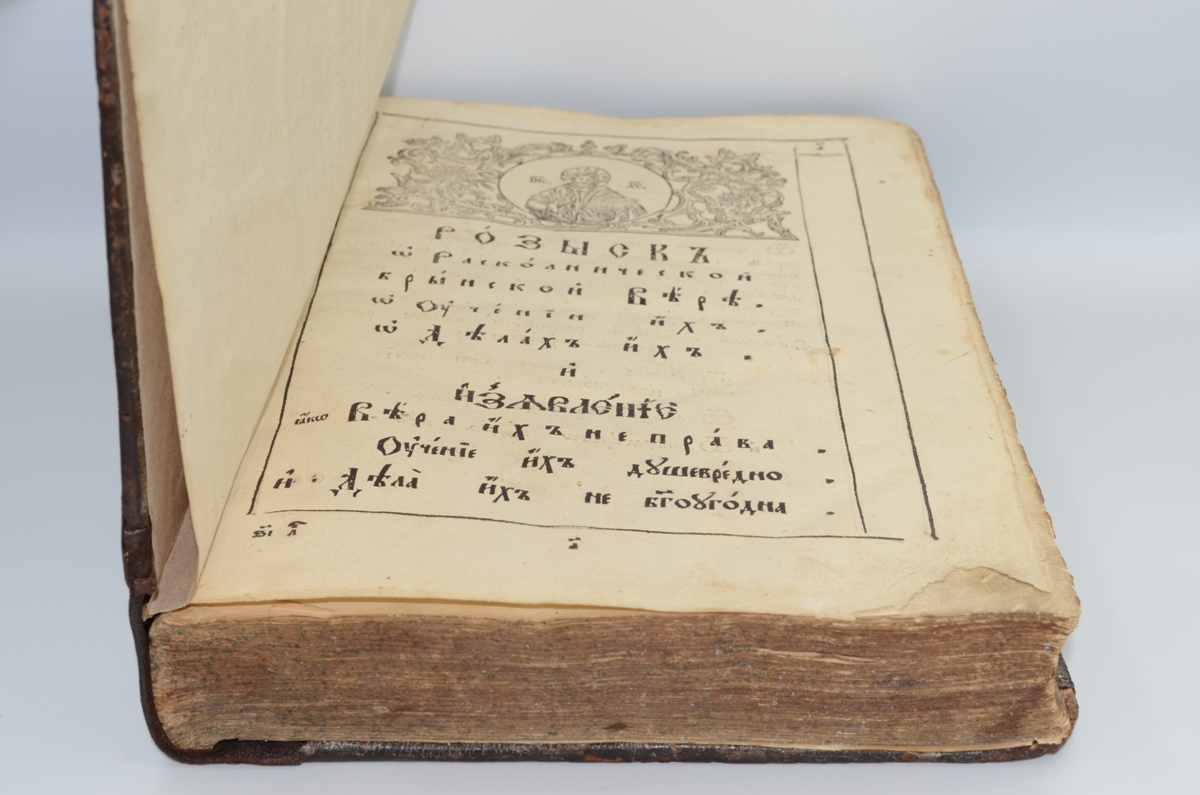 І҃С Х҃С
а҃
РО́ЗЫСКЪ
ѡ҆ Раско́лнической
бры́нской Вѣ́рѣ.
ѡ҆ Оу҆че́нїи и҆́хъ.
ѡ҆ Дѣла́хъ и҆́хъ.
и҆
И҆З̾ѦВЛЕ́НЇЕ
ꙗ҆́кѡ Вѣ́ра и҆́хъ непра́ва.
Оу҆че́нїе и҆́хъ душевре́дно.
и҆ Дѣла̀ и҆́хъ не бг҃оуго́дна.
а҃